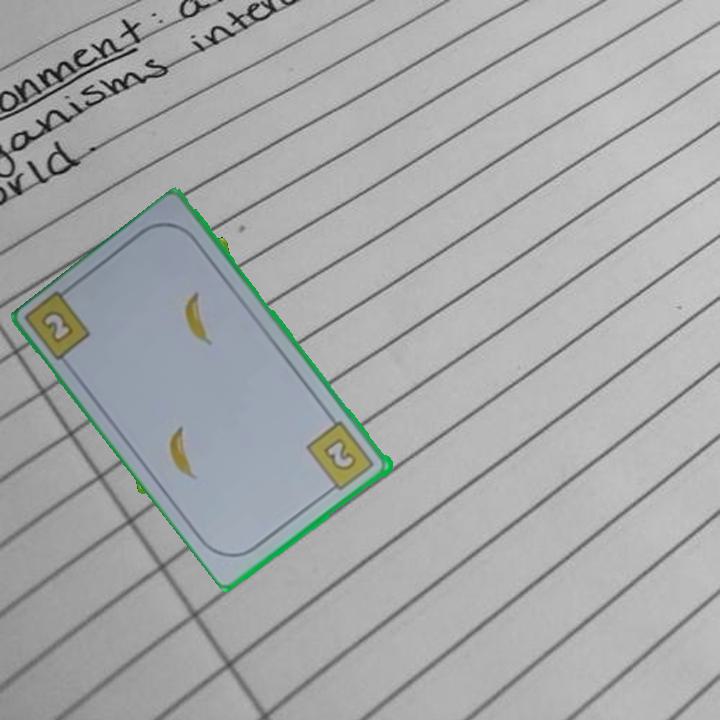 onment: a
ganisms inter
orld.
2
2